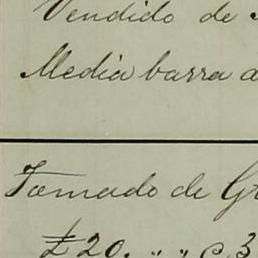 Vendido de
Media barra a
Tomado de Gr
£20. " " @ 3